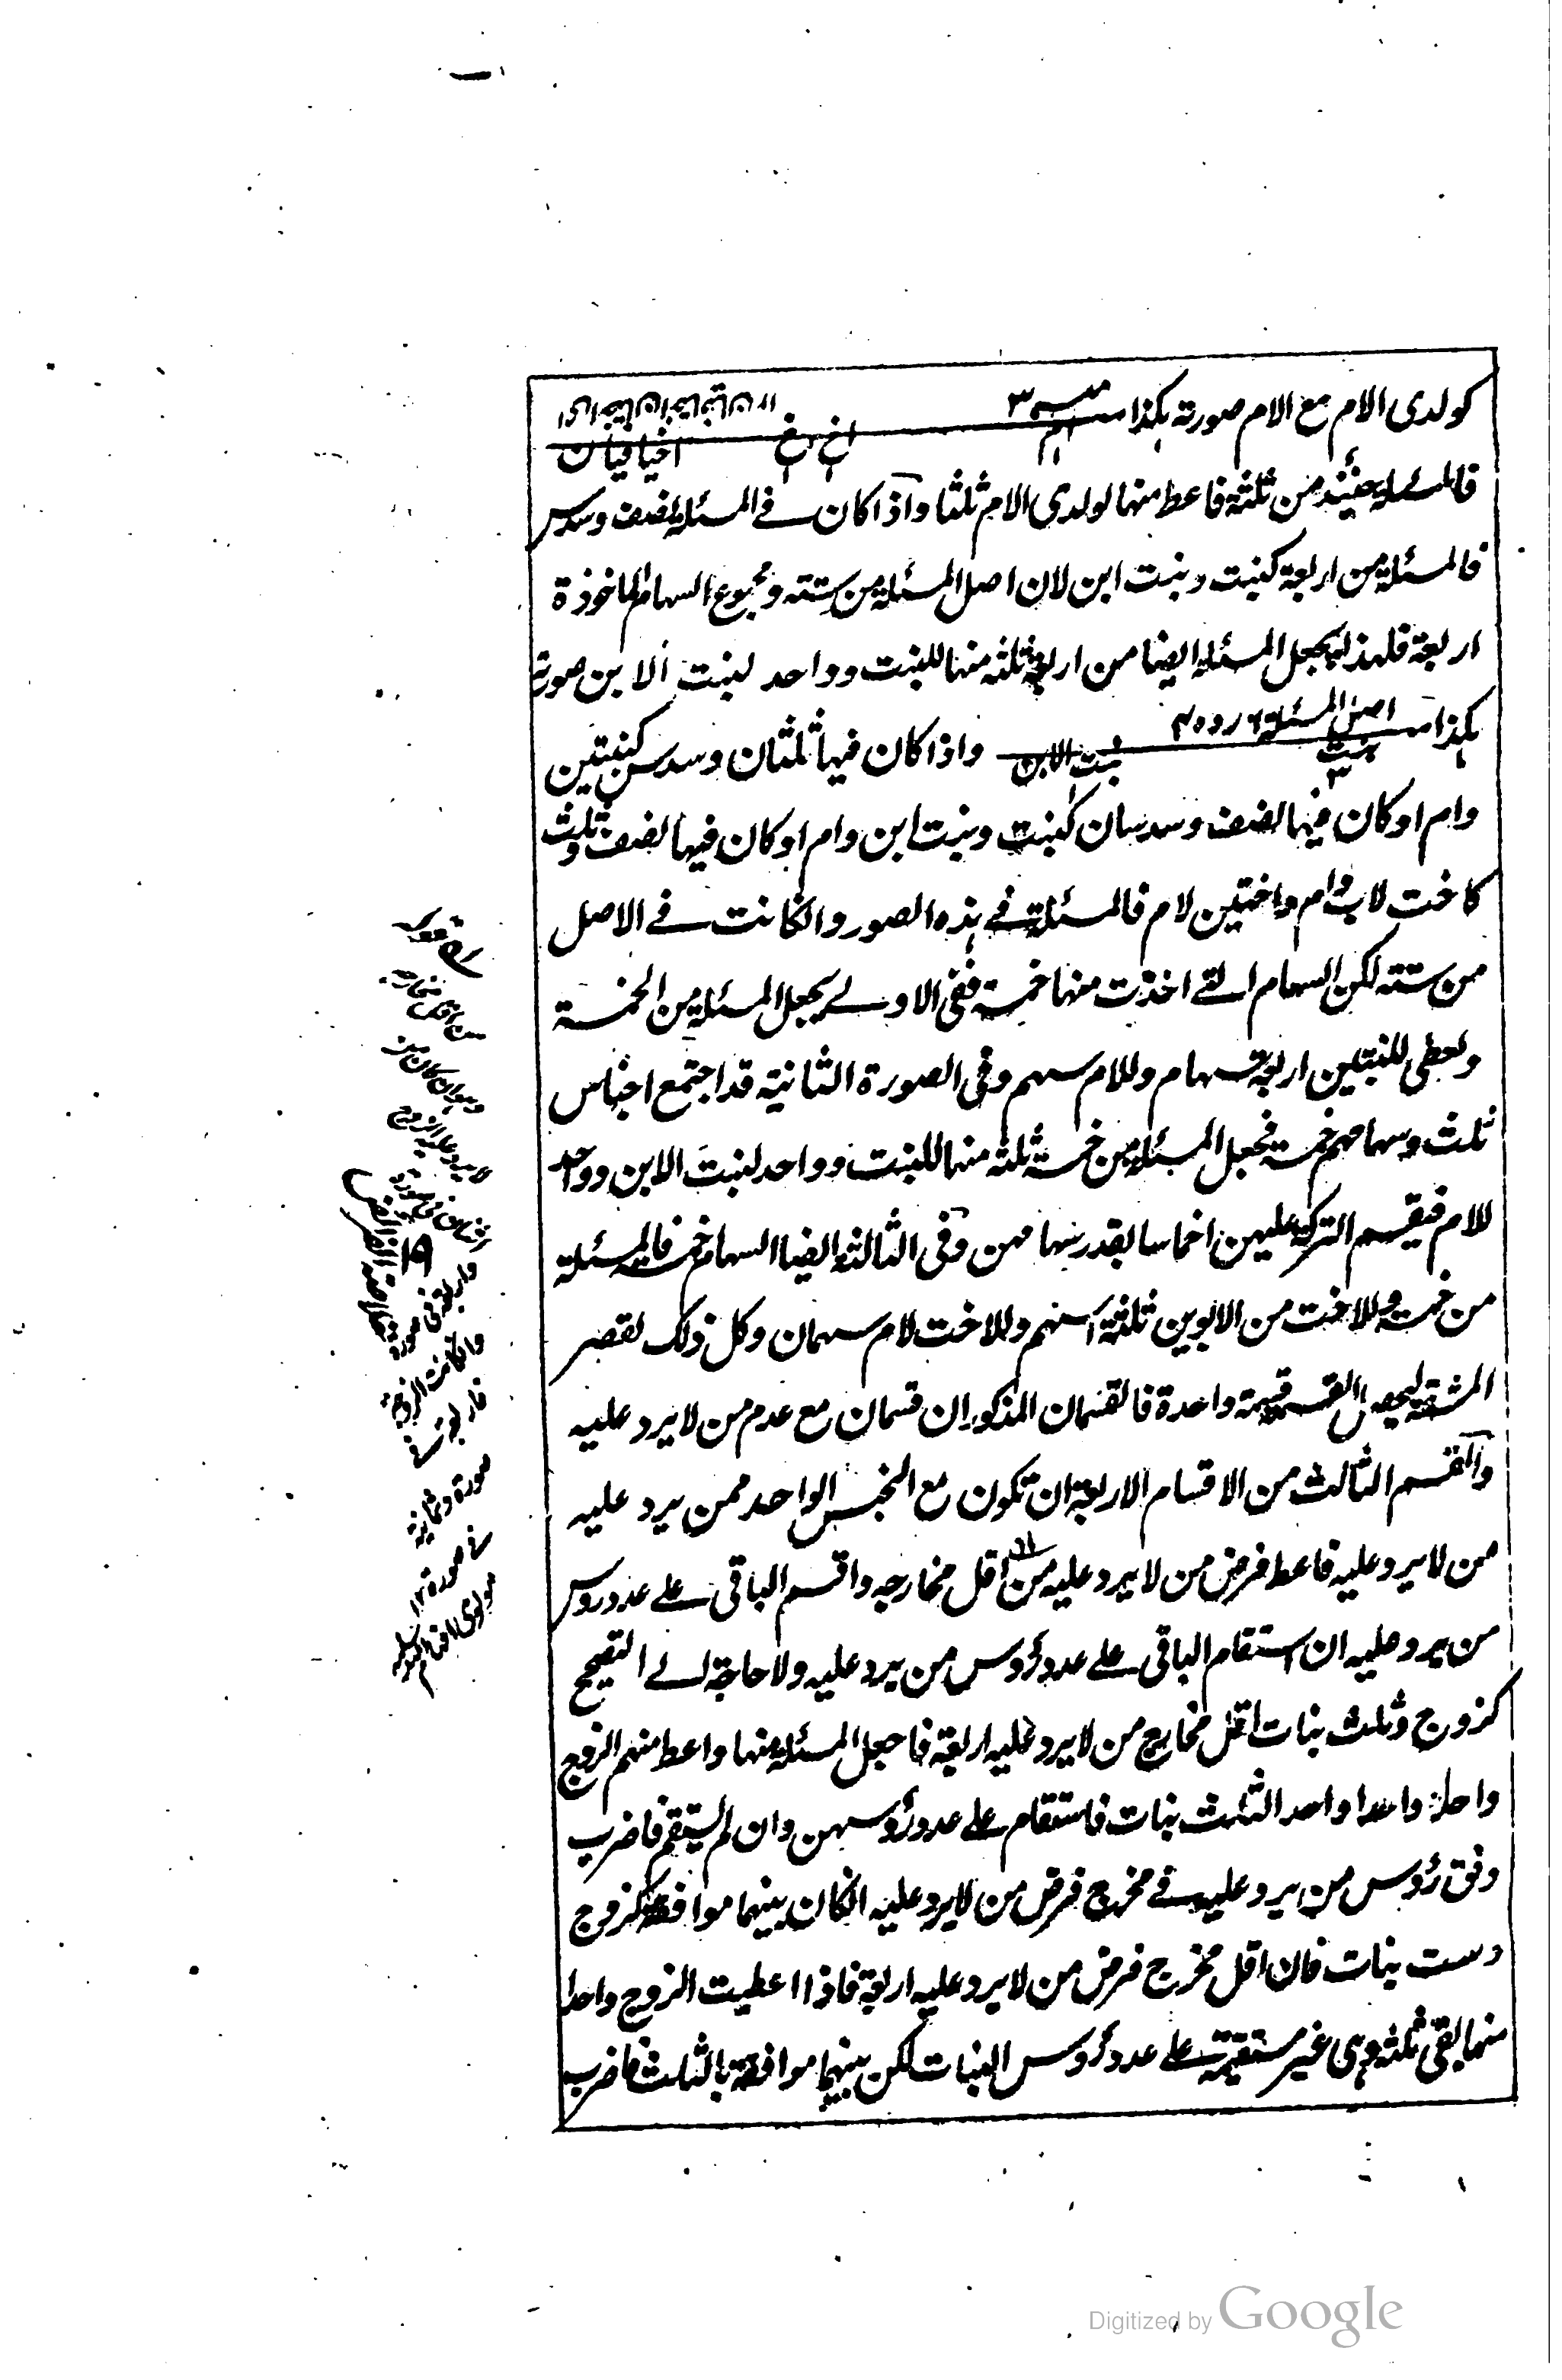 كولدى الام مع الام صورته هكذا مسـ ٣
ام ١ اخ ١ اخ ١ اخيافيان
فالمسئلة حينئذ من ثلثة فاعط منها لولدى الام ثلثا واذا كان فى المسئلة نصف وسدس
فالمسئلة من اربعة كبنت وبنت ابن لان اصل المسئلة من ستة ومجموع السهام الماخوذة
اربعة فلهذا يجعل المسئلة ايضا من اربعة ثلثة منها للبنت وواحد لبنت الابن صورته
هكذا اصل المسئلة ٦ رد ٤ بنت ٣ بنت الابن ١ واذا كان فيها ثلثان وسدس كبنتين
وام او كان فيها نصف وسدسان كبنت وبنت ابن وام او كان فيها نصف وثلث
كاخت لاب وام واختين لام فالمسئلة فى هذه الصور وانكانت فى الاصل
من ستة لكن السهام التى اخذت منها خمسة ففى الاولى يجعل المسئلة من الخمسة
ويعطى للبنتين اربعة سهام وللام سهم وفى الصورة الثانية قد اجتمع اجناس
ثلث وسهامهم خمسة فجعل المسئلة من خمسة ثلثة منها للبنت وواحد لبنت الابن وواحد
للام فيقسم التركة عليهن اخماسا بقدر سهامهن وفى الثالثة ايضا السهام خمسة فالمسئلة
من خمسة وللاخت من الابوين ثلثة اسهم وللاخت لام سهمان وكل ذلك لقصر
المشقة ليحصل القسمة قسمة واحدة فالقسمان المذكوران قسمان مع عدم من لا يرد عليه
والقسم الثالث من الاقسام الاربعة ان تكون مع الجنس الواحد ممن يرد عليه
من لا يرد عليه فاعط فرض من لا يرد عليه من اقل مخارجه واقسم الباقى على عدد روس
من يرد عليه ان استقام الباقى على عدد رؤس من يرد عليه ولا حاجة الى التصحيح
كزوج وثلث بنات اقل مخارج من لا يرد عليه اربعة فاجعل المسئلة منها واعط منهم الزوج
واحدا واحدا واحد الثلث بنات فاستقام على عدد رؤسهن وان لم يستقم فاضرب
وفق رؤس من يرد عليه فى مخرج فرض من لا يرد عليه انكان بينهما موافقة كزوج
وست بنات فان اقل مخرج فرض من لا يرد عليه اربعة فاذا اعطيت الزوج واحدا
منها بقى ثلثة وهى غير مستقيمة على عدد رؤس البنات لكن بينهما موافقة بالثلث فاضرب
قوله
من اقل مخارجه
وهو ان كان من
لا يرد عليه الزوج
اثنان فى صورة
١٩
واربعة فى صورة
وانكانت الزوجة
فاربعة فى
صورة وثمانية
فى صورة ١٢
مولوى
Digitized by Google